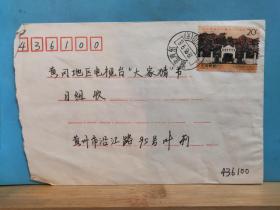 436100
20
黄冈地区电视台“大家猜”节
目组 收
黄州市沿江路95号叶利
436100